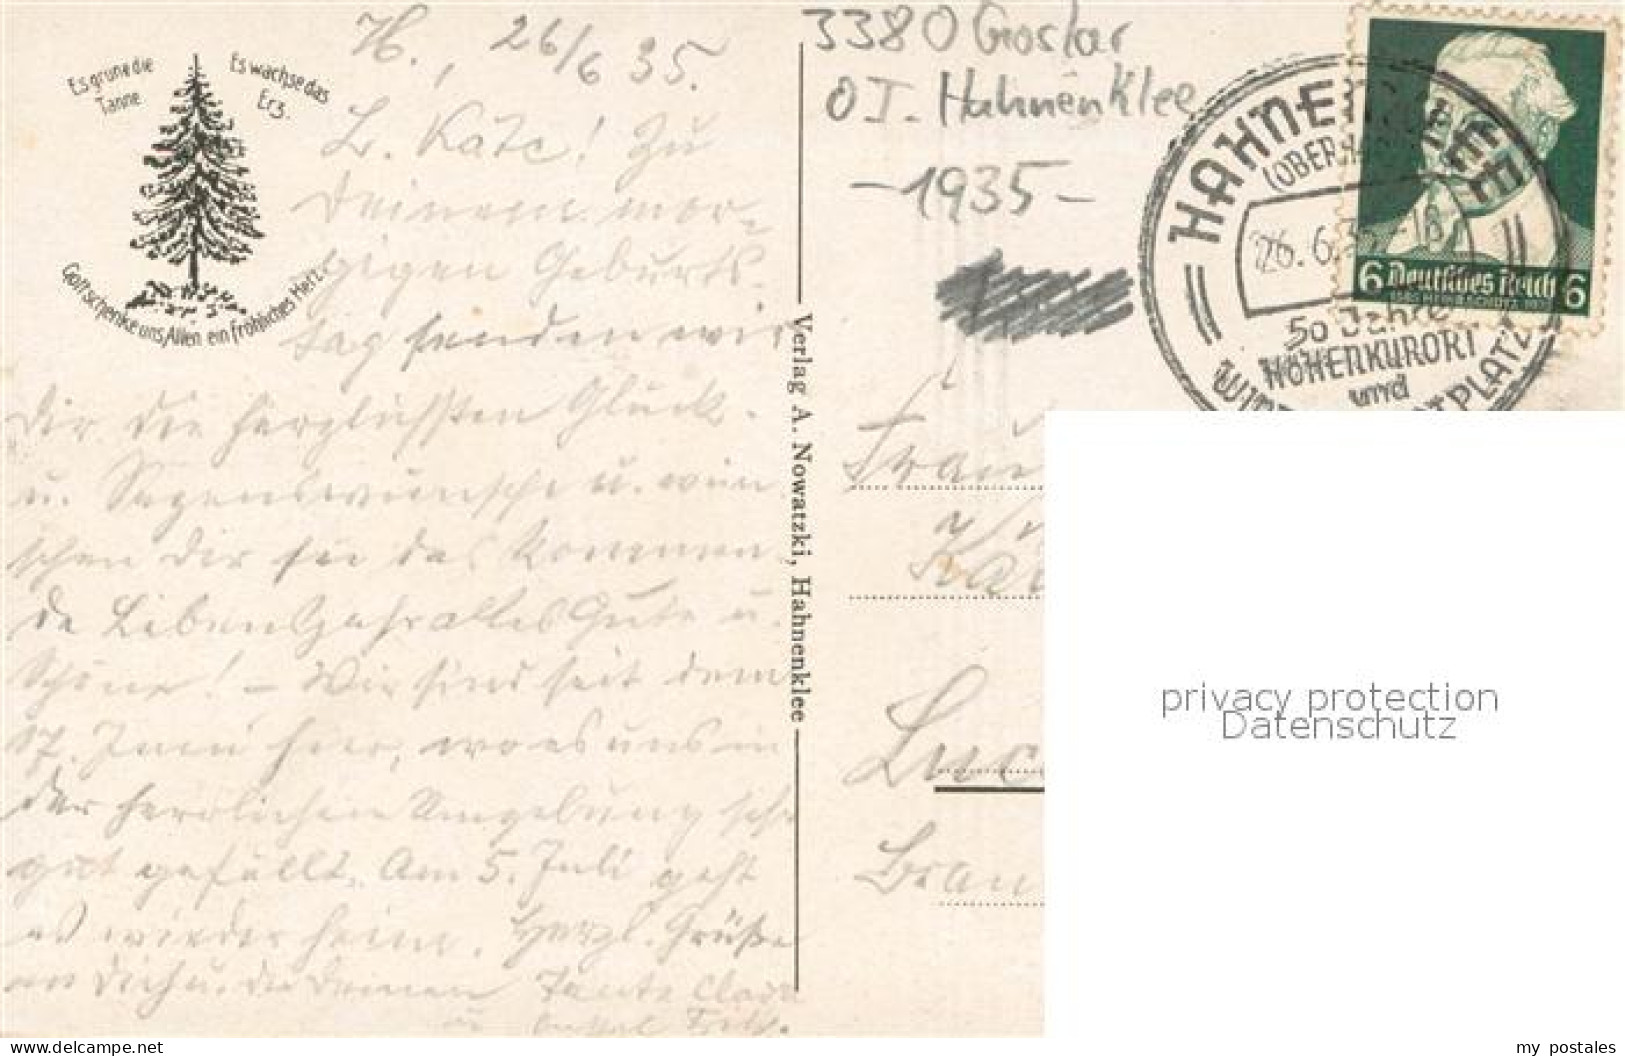 Es grüne die
Tanne
Es wachse das
Erz.
Gott schenke uns Allen ein fröhliches Herz.
H., 26/6 35.
L. Käte! Zu
Deinem mor-
gigen Geburts-
tag senden wir
Dir die herzlichsten Glück-
u. Segenswünsche u. wün
schen Dir für das kommen
de Lebensjahr alles Gute u.
Schöne! – Wir sind seit dem
17. Juni hier, wo es uns in
der herrlichen Umgebung sehr
gut gefällt. Am 5. Juli geht
es wieder heim. Herzl. Grüße
an Dich u. die Deinen Tante Clara
u. Onkel Fritz.
Verlag A. Nowatzki, Hahnenklee
3380 Goslar
OT. Hahnenklee
-1935-
Frau
Luc
Brau
HAHNENKLEE
(OBERHARZ)
26.6.35-16
50 Jahre
HÖHENKURORT
und
WINTERSPORTPLATZ
6 Deutsches Reich 6
1585 HEINR. SCHÜTZ 1935
privacy protection
Datenschutz
delcampe.net
my_postales